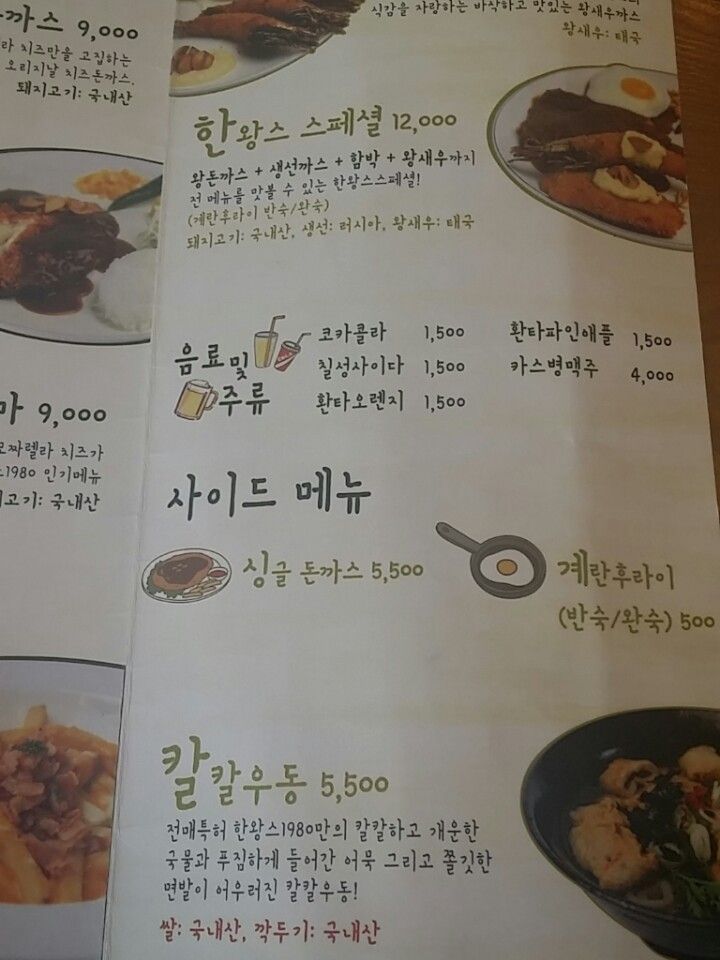 까스 9,000
치즈만을 고집하는
오리지날 치즈돈까스.
돼지고기: 국내산
9,000
모짜렐라 치즈가
1980 인기메뉴
고기: 국내산
식감을 자랑하는 바삭하고 맛있는 왕새우까스
왕새우: 태국
한왕스 스페셜 12,000
왕돈까스 + 생선까스 + 함박 + 왕새우까지
전 메뉴를 맛볼 수 있는 한왕스스페셜!
(계란후라이 반숙/완숙)
돼지고기: 국내산, 생선: 러시아, 왕새우: 태국
음료및
주류
코카콜라 1,500
칠성사이다 1,500
환타오렌지 1,500
환타파인애플 1,500
카스병맥주 4,000
사이드 메뉴
싱글 돈까스 5,500
계란후라이
(반숙/완숙) 500
칼칼우동 5,500
전매특허 한왕스1980만의 칼칼하고 개운한
국물과 푸짐하게 들어간 어묵 그리고 쫄깃한
면발이 어우러진 칼칼우동!
쌀: 국내산, 깍두기: 국내산